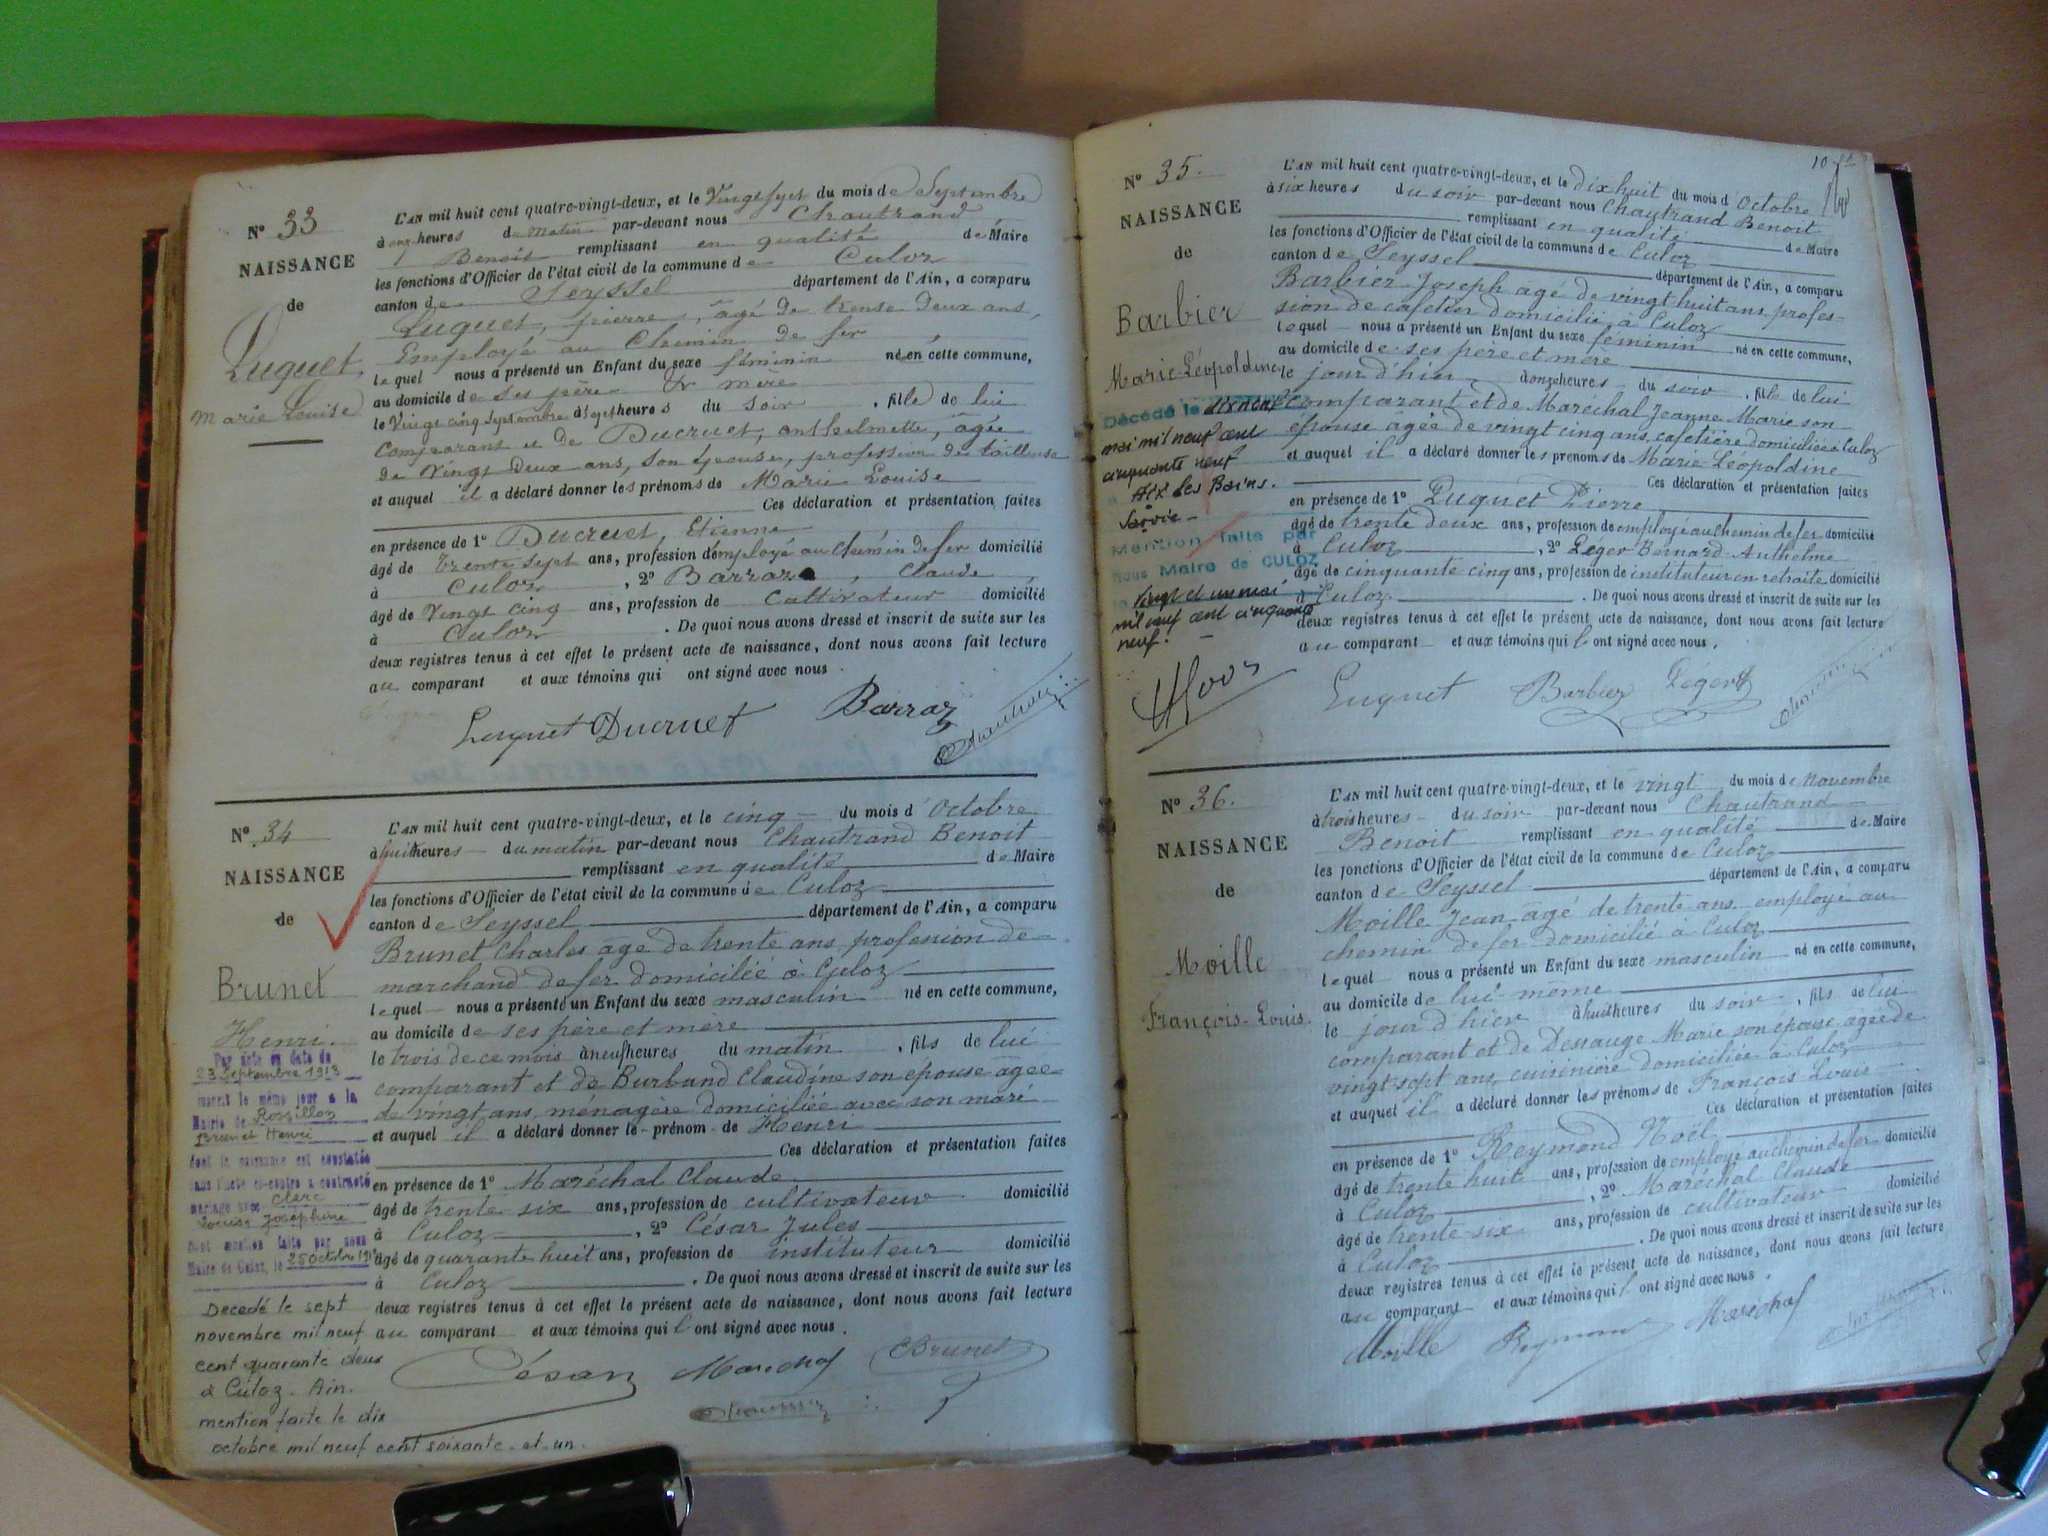 N° 33
NAISSANCE
de
Luquet
Marie Louise
L'AN mil huit cent quatre-vingt-deux, et le Vingt sept du mois de Septembre
à onze heures du matin par-devant nous Chautrand
Benoit remplissant en qualité de Maire
les fonctions d'Officier de l'état civil de la commune de Culoz
canton de Seyssel département de l'Ain, a comparu
Luquet, pierre, âgé de trente deux ans,
Employé au Chemin de fer
lequel nous a présenté un Enfant du sexe féminin né en cette commune,
au domicile de ses père & mère
le Vingt cinq Septembre à Sept heures du Soir, fille de lui
Comparant et de Ducruet, anthelmette, âgée
de Vingt Deux ans, Son épouse, profession de tailleuse
et auquel il a déclaré donner les prénoms de Marie Louise
Ces déclaration et présentation faites
en présence de 1° Ducruet, Etienne
âgé de trente sept ans, profession d'employé au chemin de fer domicilié
à Culoz, 2° Barraz, Claude
âgé de Vingt cinq ans, profession de Cultivateur domicilié
à Culoz. De quoi nous avons dressé et inscrit de suite sur les
deux registres tenus à cet effet le présent acte de naissance, dont nous avons fait lecture
au comparant et aux témoins qui ont signé avec nous.
Luquet Ducruet Barraz
Chautrand
N° 34
NAISSANCE
de
Brunet
Henri.
Par acte en date du
23 Septembre 1913
inscrit le même jour à la
Mairie de Rossillon
Brunet Henri
dont la naissance est constatée
dans l'acte ci-contre a contracté
mariage avec Clerc
Louise Joséphine
Dont mention faite par nous
Maire de Culoz, le 25 Octobre 1913
Decedé le sept
novembre mil neuf
cent quarante deux
à Culoz. Ain.
mention faite le dix
octobre mil neuf cent soixante et un.
L'AN mil huit cent quatre-vingt-deux, et le cinq du mois d'Octobre
à huit heures du matin par-devant nous Chautrand Benoit
remplissant en qualité de Maire
les fonctions d'Officier de l'état civil de la commune de Culoz
canton de Seyssel département de l'Ain, a comparu
Brunet Charles âgé de trente ans profession de
marchand de fer domiciliée à Culoz
lequel nous a présenté un Enfant du sexe masculin né en cette commune,
au domicile de ses père et mère
le trois de ce mois à neuf heures du matin, fils de lui
comparant et de Burband Claudine son épouse âgée
de vingt ans, ménagère domiciliée avec son mari
et auquel il a déclaré donner le prénom de Henri
Ces déclaration et présentation faites
en présence de 1° Maréchal Claude
âgé de trente six ans, profession de cultivateur domicilié
à Culoz, 2° César Jules
âgé de quarante huit ans, profession de instituteur domicilié
à Culoz. De quoi nous avons dressé et inscrit de suite sur les
deux registres tenus à cet effet le présent acte de naissance, dont nous avons fait lecture
au comparant et aux témoins qui ont signé avec nous.
César Marechal Brunet
N° 35.
NAISSANCE
de
Barbier
Marie-Léopoldine
Décédé le dix neuf
mai mil neuf cent
cinquante neuf
Aix les Bains.
Savoie
Mention faite par
nous Maire de CULOZ
vingt et un mai
mil neuf cent cinquante
neuf.
10
L'AN mil huit cent quatre-vingt-deux, et le dix huit du mois d'Octobre
à six heures du soir par-devant nous Chautrand Benoit
remplissant en qualité de Maire
les fonctions d'Officier de l'état civil de la commune de Culoz
canton de Seyssel département de l'Ain, a comparu
Barbier Joseph âgé de vingt huit ans, profes-
sion de cafetier domicilié à Culoz
lequel nous a présenté un Enfant du sexe féminin né en cette commune,
au domicile de ses père et mère
le jour d'hier à onze heures du soir, fille de lui
comparant et de Maréchal Jeanne Marie son
épouse âgée de vingt cinq ans, cafetière domiciliée à Culoz
et auquel il a déclaré donner les prénoms de Marie Léopoldine
Ces déclaration et présentation faites
en présence de 1° Luquet Pierre
âgé de trente deux ans, profession de employé au chemin de fer domicilié
à Culoz, 2° Léger Bernard Anthelme
âgé de cinquante cinq ans, profession de instituteur en retraite domicilié
à Culoz. De quoi nous avons dressé et inscrit de suite sur les
deux registres tenus à cet effet le présent acte de naissance, dont nous avons fait lecture
au comparant et aux témoins qui ont signé avec nous.
Luquet Barbier Léger
N° 36.
NAISSANCE
de
Moille
François-Louis.
L'AN mil huit cent quatre-vingt-deux, et le vingt du mois de Novembre
à trois heures du soir par-devant nous Chautrand
Benoit remplissant en qualité de Maire
les fonctions d'Officier de l'état civil de la commune de Culoz
canton de Seyssel département de l'Ain, a comparu
Moille Jean âgé de trente ans employé au
chemin de fer domicilié à Culoz
lequel nous a présenté un Enfant du sexe masculin né en cette commune,
au domicile de lui-même
le jour d'hier à huit heures du soir, fils de lui
comparant et de Dessauge Marie son épouse âgée de
vingt sept ans, cuisinière domiciliée à Culoz
et auquel il a déclaré donner les prénoms de François Louis
Ces déclaration et présentation faites
en présence de 1° Reymond Noël
âgé de trente huit ans, profession de employé au chemin de fer domicilié
à Culoz, 2° Maréchal Claude
âgé de trente six ans, profession de cultivateur domicilié
à Culoz. De quoi nous avons dressé et inscrit de suite sur les
deux registres tenus à cet effet le présent acte de naissance, dont nous avons fait lecture
au comparant et aux témoins qui ont signé avec nous.
Moille Reymond Marechal